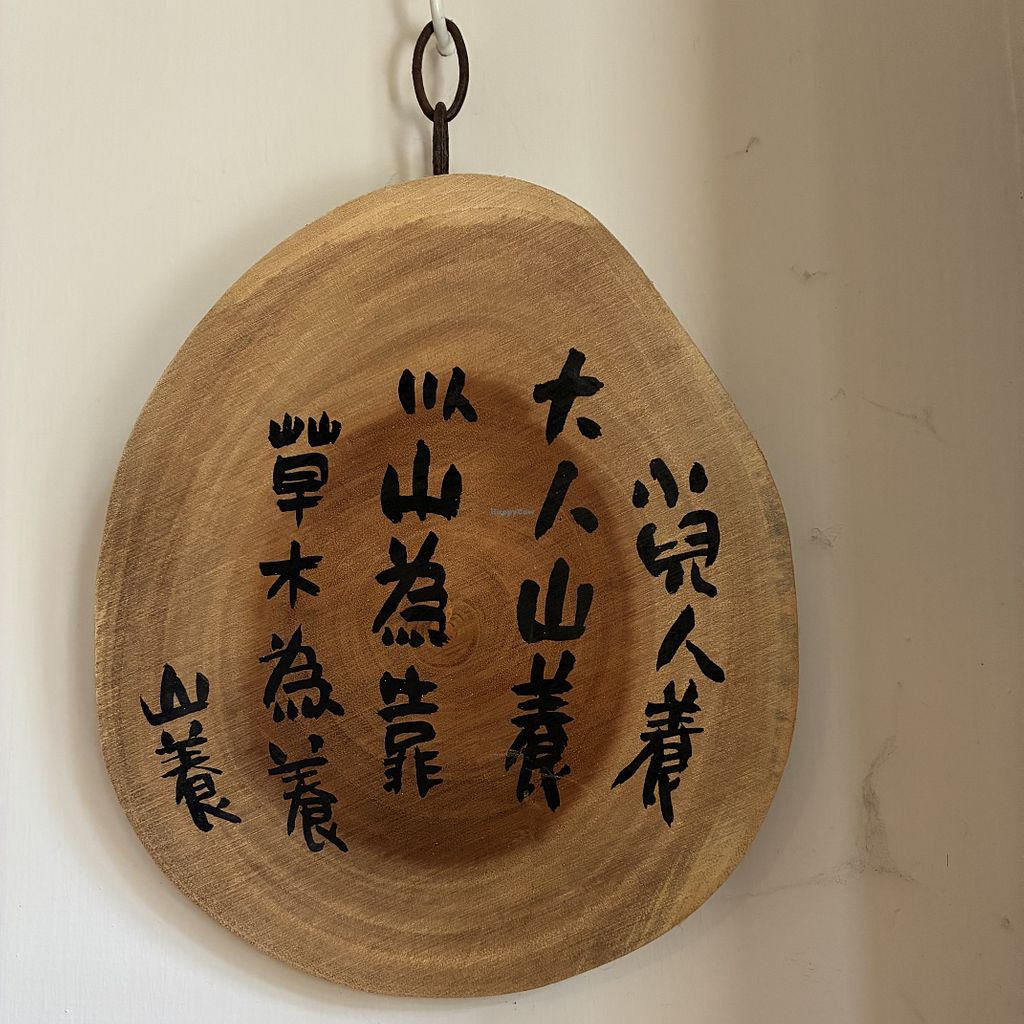 小兒人養
大人山養
以山為靠
草木為養
山養
HappyCow